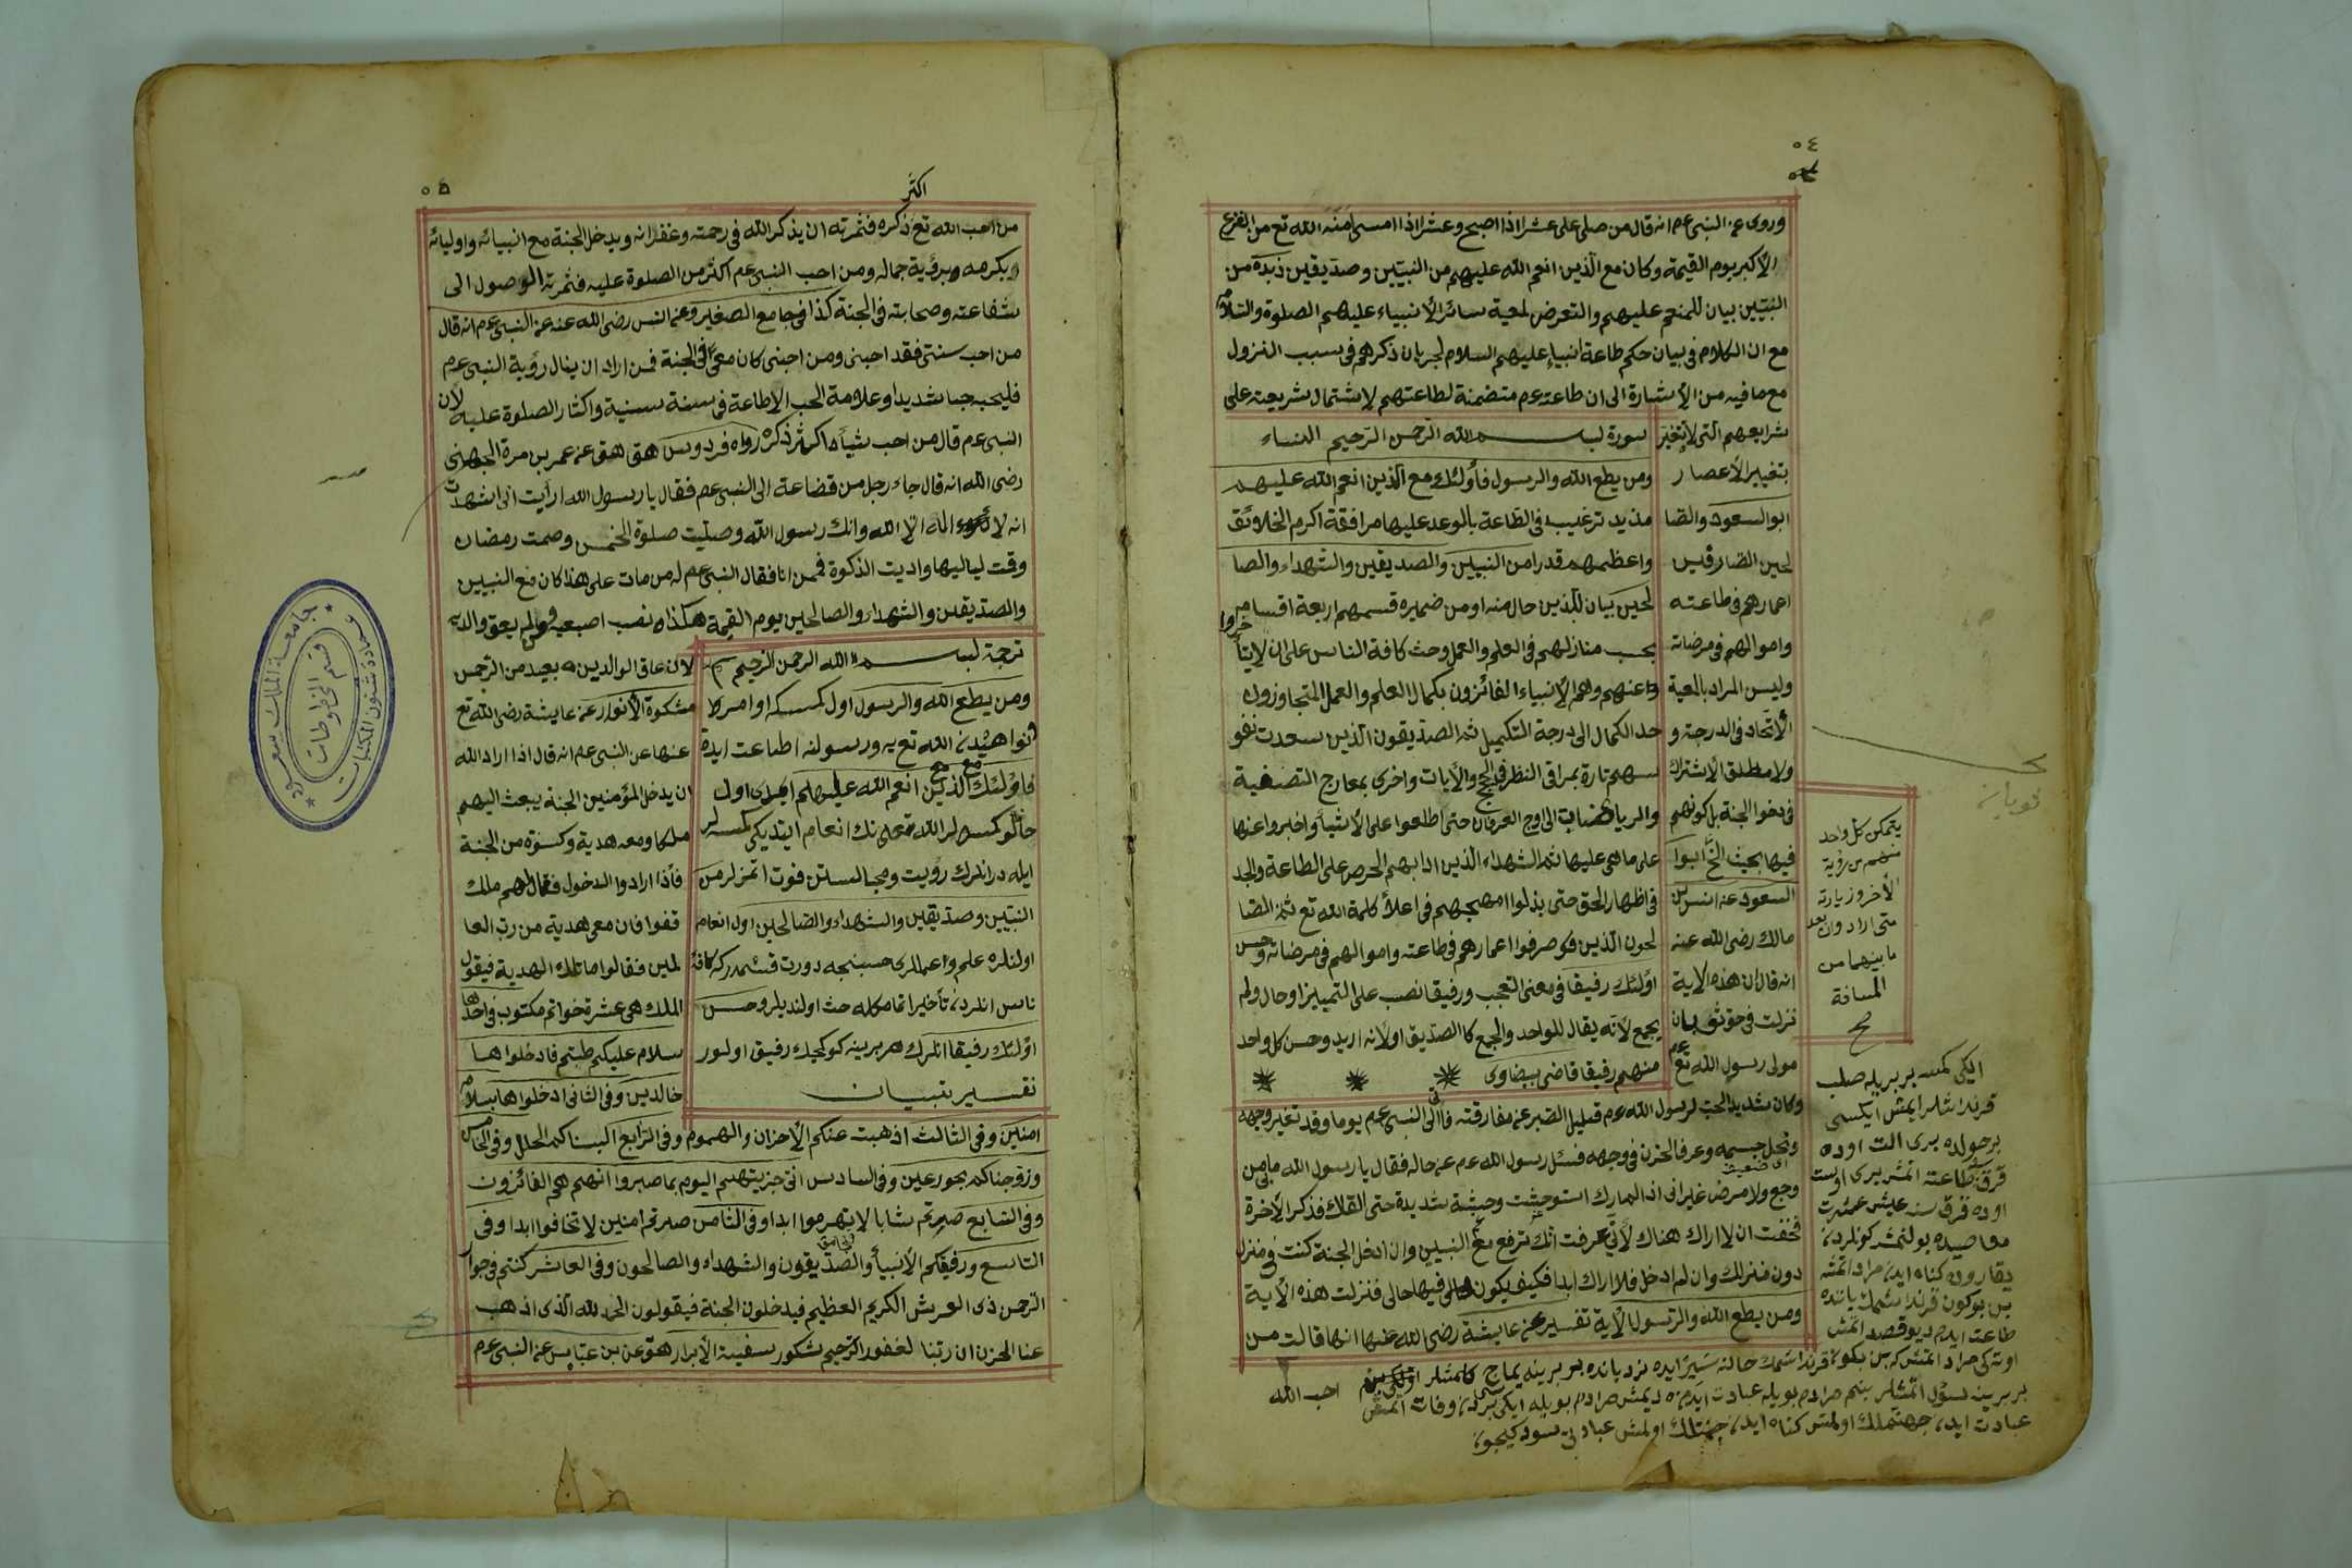 ٥٤
وروى عن النبى عم انه قال من صلى على عشرا اذا اصبح وعشرا اذا امسى امنه الله تع من الفزع
الأكبر يوم القيمة وكان مع الذين انعم الله عليهم من النبيين وصديقين زبدة من
النبيين بيان للمنعم عليهم والتعرض لمعية سائر الأنبياء عليهم الصلوة والسلام
مع ان الكلام فى بيان حكم طاعة انبياء عليهم السلام لجريان ذكرهم فى سبب النزول
مع ما فيه من الأشارة الى ان طاعته عم متضمنة لطاعتهم لاشتمال شريعته على
شرايعهم التى لا يتغير
بتغيير الأعصار
ابو السعود والصا
لحين الصارفين
اعمارهم فى طاعته
واموالهم فى مرضاته
وليس المراد بالمعية
الأتحاد فى الدرجة و
ولا مطلق الاشتراك
فى دخوا الجنة بل كونهم
فيها بحيث الخ ابوا
السعود عن انس بن
مالك رضى الله عنه
انه قال ان هذه الاية
نزلت فى حق ثوبان
مولى رسول الله تع عم
سورة بسم الله الرحمن الرحيم النساء
ومن يطع الله والرسول فأولئك مع الذين انعم الله عليهم
مزيد ترغيب فى الطاعة بالوعد عليها مرافقة اكرم الخلائق
واعظمهم قدرا من النبيين والصديقين والشهداء والصا
لحين بيان للذين حال منه او من ضميره قسمهم اربعة اقسام
بحسب منازلهم فى العلم والعمل وحث كافة الناس على ان لا يتأخروا
عنهم وهم الأنبياء الفائزون بكمال العلم والعمل المتجاوزون
حد الكمال الى درجة التكميل ثم الصديقون الذين سعدت نفو
سهم تارة بمراقى النظر فى الحج والأيات واخرى بمعارج التصفية
والرياضات الى اوج العرفان حتى اطلعوا على الأشيأ واخبروا عنها
على ما هى عليها ثم الشهداء الذين ادابهم الحرص على الطاعة والجد
فى اظهار الحق حتى بذلوا امهجهم فى اعلأ كلمة الله تع ثم الصا
لحون الذين صرفوا اعمارهم فى طاعته واموالهم فى مرضاته وحسن
اولئك رفيقا فى معنى التعجب ورفيقا نصب على التمييز او حال ولم
يجمع لأنه يقال للواحد والجمع كا الصديق او لأنه اريد وحسن كل واحد
منهم رفيقا قاضى بيضاوى
وكان شديد الحب لرسول الله عم قليل الصبر عن مفارقته فأتى الى النبى عم يوما وقد تغير وجهه
ونحل جسمه وعرف الحزن فى وجهه فسئل رسول الله عم عن حاله فقال يا رسول الله ما بى من
وجع ولا مرض غير انى اذ لم ارك استوحشت وحشة شديدة حتى القاك فذكر الأخرة
فخفت ان لا اراك هناك لأنى عرفت انك ترفع مع النبيين وان ادخل الجنة كنت فى منزل
دون منزلك وان لم ادخل فلا اراك ابدا فكيف يكون فيها حالى فنزلت هذه الأية
ومن يطع الله والرسول الأية تفسير عن عايشة رضى الله عنها انها قالت من
احب الله
يتمكن كل واحد
منهم من رؤية
الأخر وزيارته
متى ارادوان بعد
ما بينهما من
المسافة
ايكى كمسه بر بريله صلب
قرنداشلر ايمش ايكسى
٥٥
اكثر
من احب الله تع ذكره فثمرته ان يذكر الله فى رحمته وغفرانه ويدخل الجنة مع انبيائه واوليائه
ويكرمه برؤية جماله ومن احب النبى عم اكثر من الصلوة عليه فثمرته الوصول الى
شفاعته وصحابته فى الجنة كذا فى جامع الصغير وعن انس رضى الله عنه عن النبى عم انه قال
من احب سنتى فقد احبنى ومن احبنى كان معى فى الجنة فمن اراد ان ينال رؤية النبى عم
فليحبه حبا شديدا وعلامة الحب الإطاعة فى سنة سنية واكثار الصلوة عليه لان
النبى عم قال من احب شيأ اكثر ذكره رواه فردوس هق هق عن عمر بن مرة الجهنى
رضى الله انه قال جاء رجل من قضاعة الى النبى عم فقال يا رسول الله ارأيت انى اشهدت
انه لا اله الا الله وانك رسول الله وصليت صلوة الخمس وصمت رمضان
وقت لياليها واديت الذكوة فمن انا فقال النبى عم له من مات على هذا كان مع النبيين
والصديقين والشهداء والصالحين يوم القيمة هكذا ونصب اصبعيه ولم يعق والديه
ترجمة بسم الله الرحمن الرحيم
ومن يطع الله والرسول اول كمسكه اوامر
الله تع يه ورسولنه اطاعت ايده
فاولئك مع الذين انعم الله عليهم
ايله درانلرك رؤيت ومجالستن فوت اتمزلر من
النبيين وصديقين والشهداء والصالحين اول انعام
اولنلره علم واعماللرى حسبنجه دورت قسمدركه كافة
ناس انلردن تأخير اتمامكله حث اولنديلر وحسن
اولئك رفيقا انلرك هر برينه كوكجك رفيق اولور
تفسير تبيان
لان عاق الوالدين بعيد من الرحمن
مشكوة الأنوار عن عايشة رضى الله تع
عنها عن النبى عم انه قال اذا اراد الله
ان يدخل المؤمنين الجنة يبعث اليهم
ملكا ومعه هدية وكسوة من الجنة
فأذا ارادوا الدخول فقال لهم ملك
قفوا فان معى هدية من رب العا
لمين فقالوا ما تلك الهدية فيقول
الملك هى عشرة خواتم مكتوب فى احدها
سلام عليكم طبتم فادخلوها
خالدين وفى الثانى ادخلوها بسلام
امنين وفى الثالث اذهبت عنكم الأحزان والهموم وفى الرابع البسناكم الحلل وفى الخامس
وزوجناكم بحور عين وفى السادس انى جزيتهم اليوم بما صبروا انهم هم الفائزون
وفى السابع صرتم شابا لا تهرموا ابدا وفى الثامن صرتم امنين لا تخافوا ابدا وفى
التاسع ورفيقكم الأنبيأ والصديقون والشهداء والصالحون وفى العاشر كنتم فى جوار
الرحمن ذى العرش الكريم العظيم فيدخلون الجنة فيقولون الحمد لله الذى اذهب
عنا الحزن ان ربنا لغفور الرحيم شكور سفينة الأبرار هق عن بن عباس عن النبى عم
جامعة الملك سعود
عمادة شئون المكتبات
قسم المخطوطات